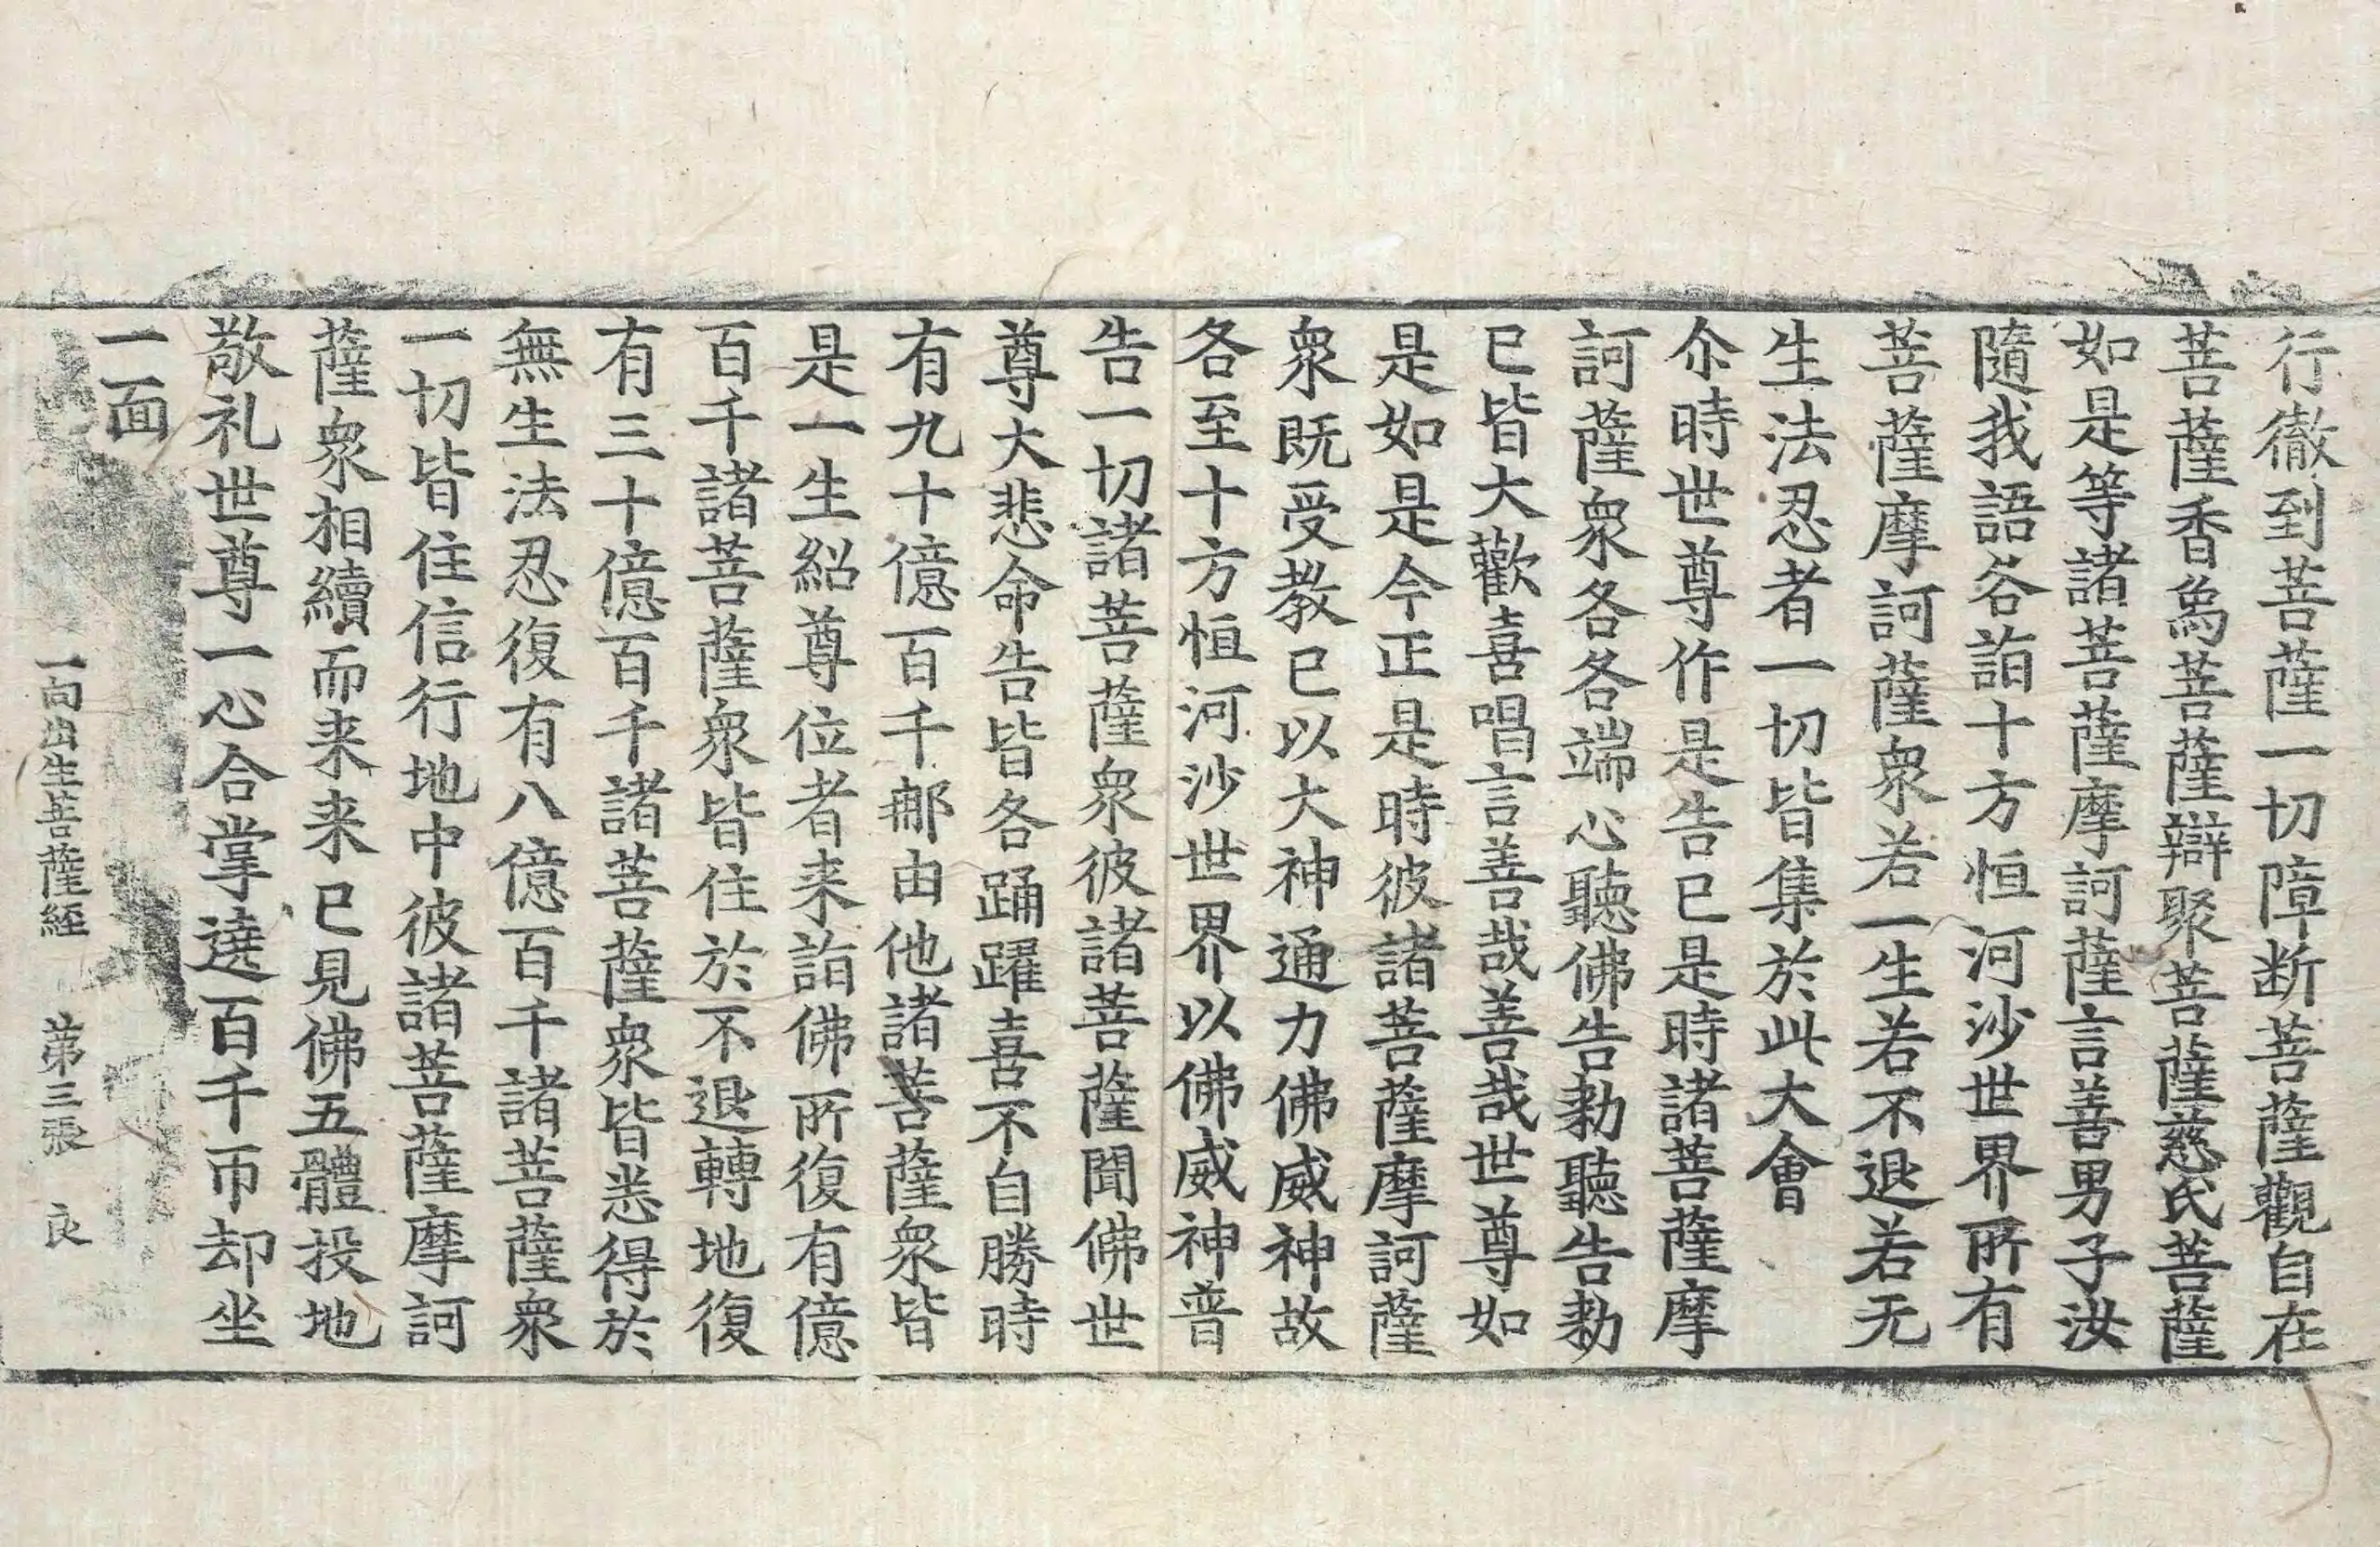 行徹到菩薩一切障断菩薩觀自在
菩薩香爲菩薩辯聚菩薩慈氏菩薩
如是等諸菩薩摩訶薩言善男子汝
隨我語各詣十方恒河沙世界所有
菩薩摩訶薩衆若一生若不退若无
生法忍者一切皆集於此大會
尒時世尊作是告已是時諸菩薩摩
訶薩衆各各端心聽佛告勑聽告勑
已皆大歡喜唱言善哉善哉世尊如
是如是今正是時彼諸菩薩摩訶薩
衆既受教已以大神通力佛威神故
各至十方恒河沙世界以佛威神普
告一切諸菩薩衆彼諸菩薩聞佛世
尊大悲命告皆各踊躍喜不自勝時
有九十億百千那由他諸菩薩衆皆
是一生紹尊位者来詣佛所復有億
百千諸菩薩衆皆住於不退轉地復
有三十億百千諸菩薩衆皆悉得於
無生法忍復有八億百千諸菩薩衆
一切皆住信行地中彼諸菩薩摩訶
薩衆相續而来来已見佛五體投地
敬礼世尊一心合掌遶百千帀却坐
一面
一向出生菩薩經 第三張 良